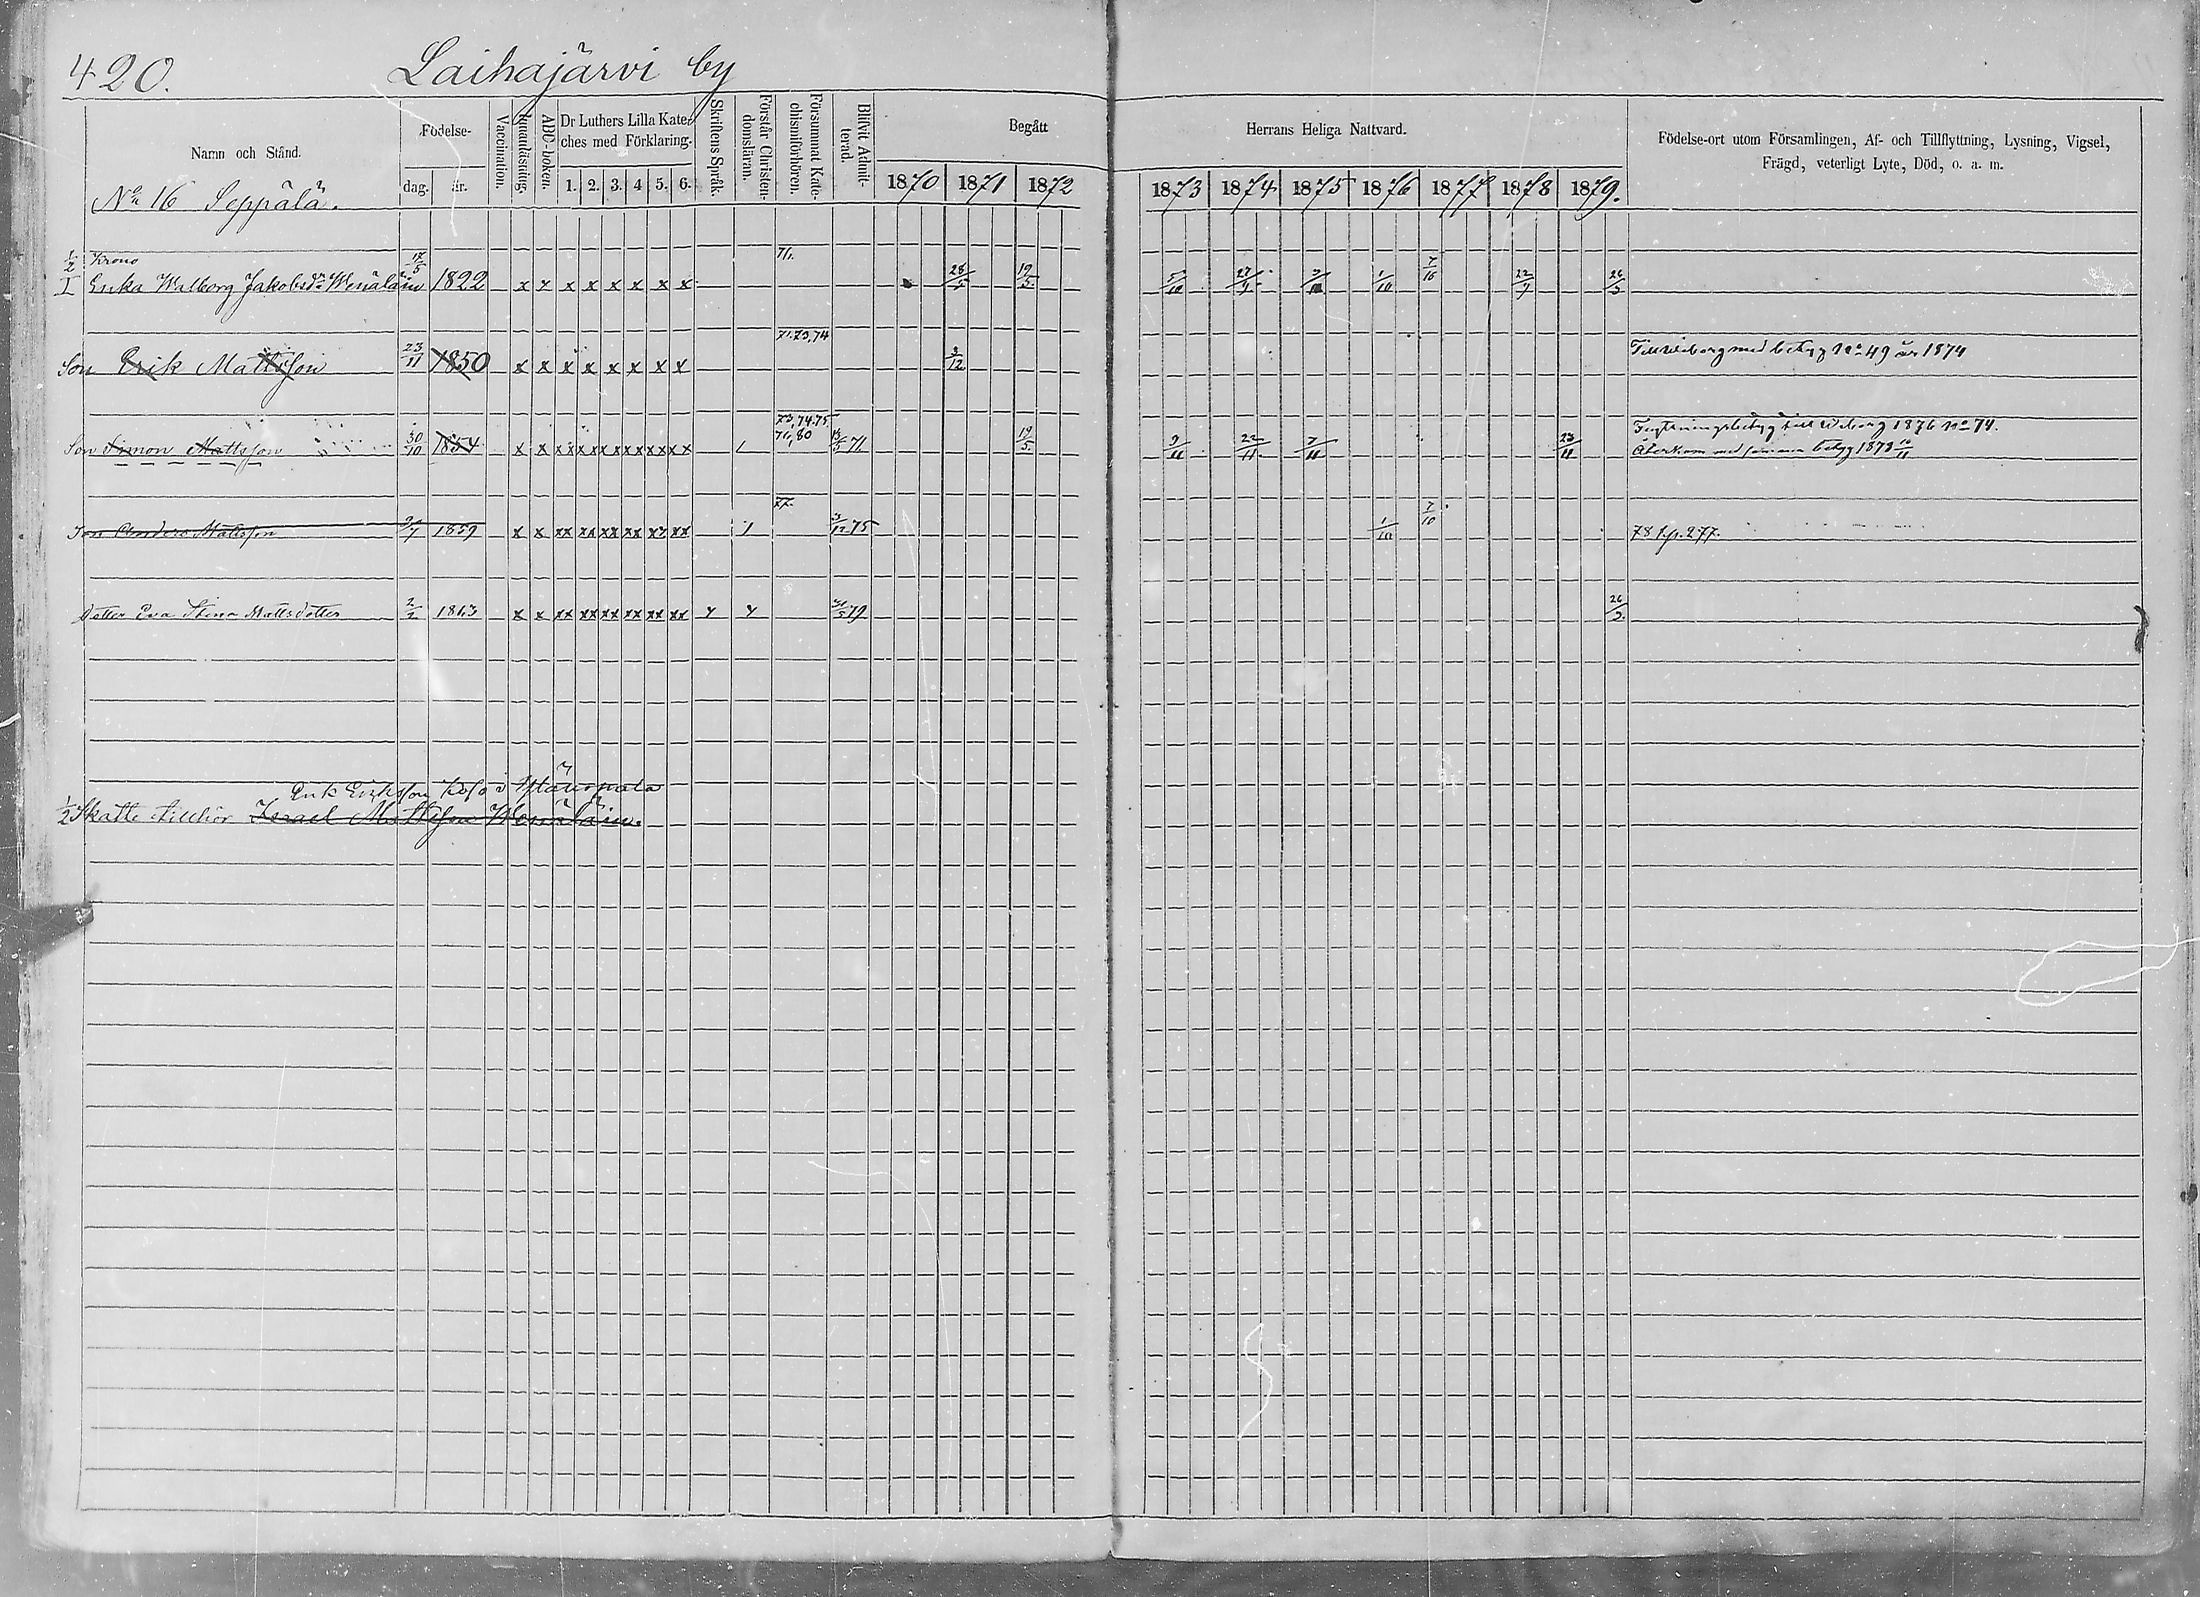 420.
Laihajärvi by
Namn och Stånd.
Födelse-
dag. år.
Vaccination.
Innanläsning.
ABC-boken.
Dr Luthers Lilla Kate-
ches med Förklaring.
1. 2. 3. 4 5. 6.
Skriftens Språk.
Förstår Christen-
domsläran.
Försummat Kate-
chismiförhören.
Blifvit Admit-
terad.
Begått
Herrans Heliga Nattvard.
1870 1871 1872
1873 1874 1875 1876 1877 1878 1879.
Födelse-ort utom Församlingen, Af- och Tillflyttning, Lysning, Vigsel,
Frägd, veterligt Lyte, Död, o. a. m.
No 16 Seppälä.
Krono 71.
1/2 I Erika Walborg Jakobsdr Wenäläin 17/5 1822 x x x x x x x x 28/5 19/5 5/10 27/9 1/10 7/10 22/9 26/5
71.73,74
Son Erik Mattsson 23/11 1850 x x x x x x x x 3/12 Till Wiborg med betyg No 49 år 1874
73,74.75. 71,80
Son Simon Mattsson 30/10 1854 x x xx xx xx xx xx xx 1 71. 19/5 9/11 22/11 7/11 23/11 Flyttningsbetyg till Wiborg 1876 No 74.
Återkom med samma betyg 1879
77.
Son Anders Mattsson 1859 x x xx xx xx xx xx xx 1 75 1/10 7/10 78 p. 277.
Dotter Eva Stina Mattsdotter 2/2 1863 x x xx xx xx xx xx xx x x 79 26/5
Erik Eriksson
1/2 Skatte tillhör Israel Mattsson Wenäläin.